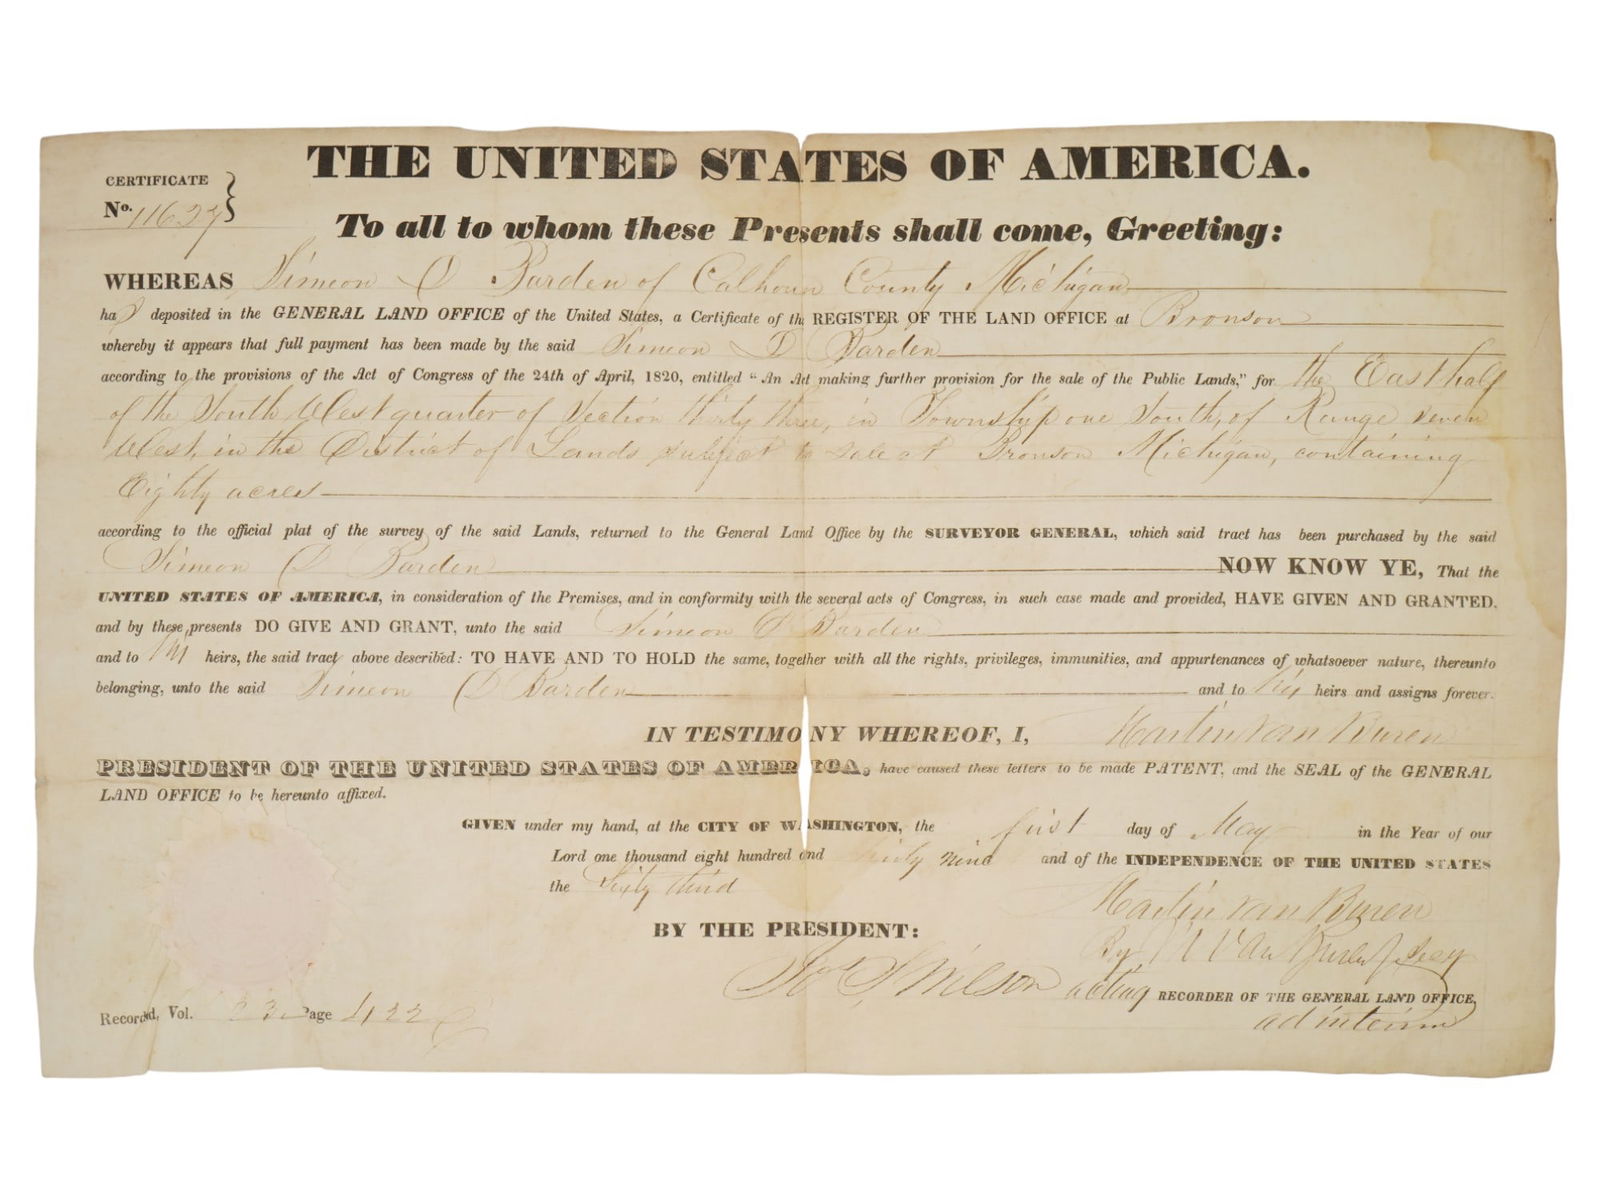 THE UNITED STATES OF AMERICA.
CERTIFICATE
No. 11627
To all to whom these Presents shall come, Greeting:
WHEREAS Simeon D Barden of Calhoun County Michigan
has deposited in the GENERAL LAND OFFICE of the United States, a Certificate of the REGISTER OF THE LAND OFFICE at Bronson
whereby it appears that full payment has been made by the said Simeon D Barden
according to the provisions of the Act of Congress of the 24th of April, 1820, entitled "An Act making further provision for the sale of the Public Lands," for the East half
of the South West quarter of Section thirty three, in Township one South, of Range seven
West, in the District of Lands subject to sale at Bronson Michigan, containing
Eighty acres
according to the official plat of the survey of the said Lands, returned to the General Land Office by the SURVEYOR GENERAL, which said tract has been purchased by the said
Simeon D Barden NOW KNOW YE, That the
UNITED STATES OF AMERICA, in consideration of the Premises, and in conformity with the several acts of Congress, in such case made and provided, HAVE GIVEN AND GRANTED,
and by these presents DO GIVE AND GRANT, unto the said Simeon D Barden
and to his heirs, the said tract above described: TO HAVE AND TO HOLD the same, together with all the rights, privileges, immunities, and appurtenances of whatsoever nature, thereunto
belonging, unto the said Simeon D Barden and to his heirs and assigns forever.
IN TESTIMONY WHEREOF, I, Martin Van Buren
PRESIDENT OF THE UNITED STATES OF AMERICA, have caused these letters to be made PATENT, and the SEAL of the GENERAL
LAND OFFICE to be hereunto affixed.
GIVEN under my hand, at the CITY OF WASHINGTON, the first day of May in the Year of our
Lord one thousand eight hundred and thirty nine and of the INDEPENDENCE OF THE UNITED STATES
the Sixty third
BY THE PRESIDENT: Martin Van Buren
By M Van Buren Jr Secy
Jos S Wilson acting RECORDER OF THE GENERAL LAND OFFICE,
ad interim
Record, Vol. 23 Page 422